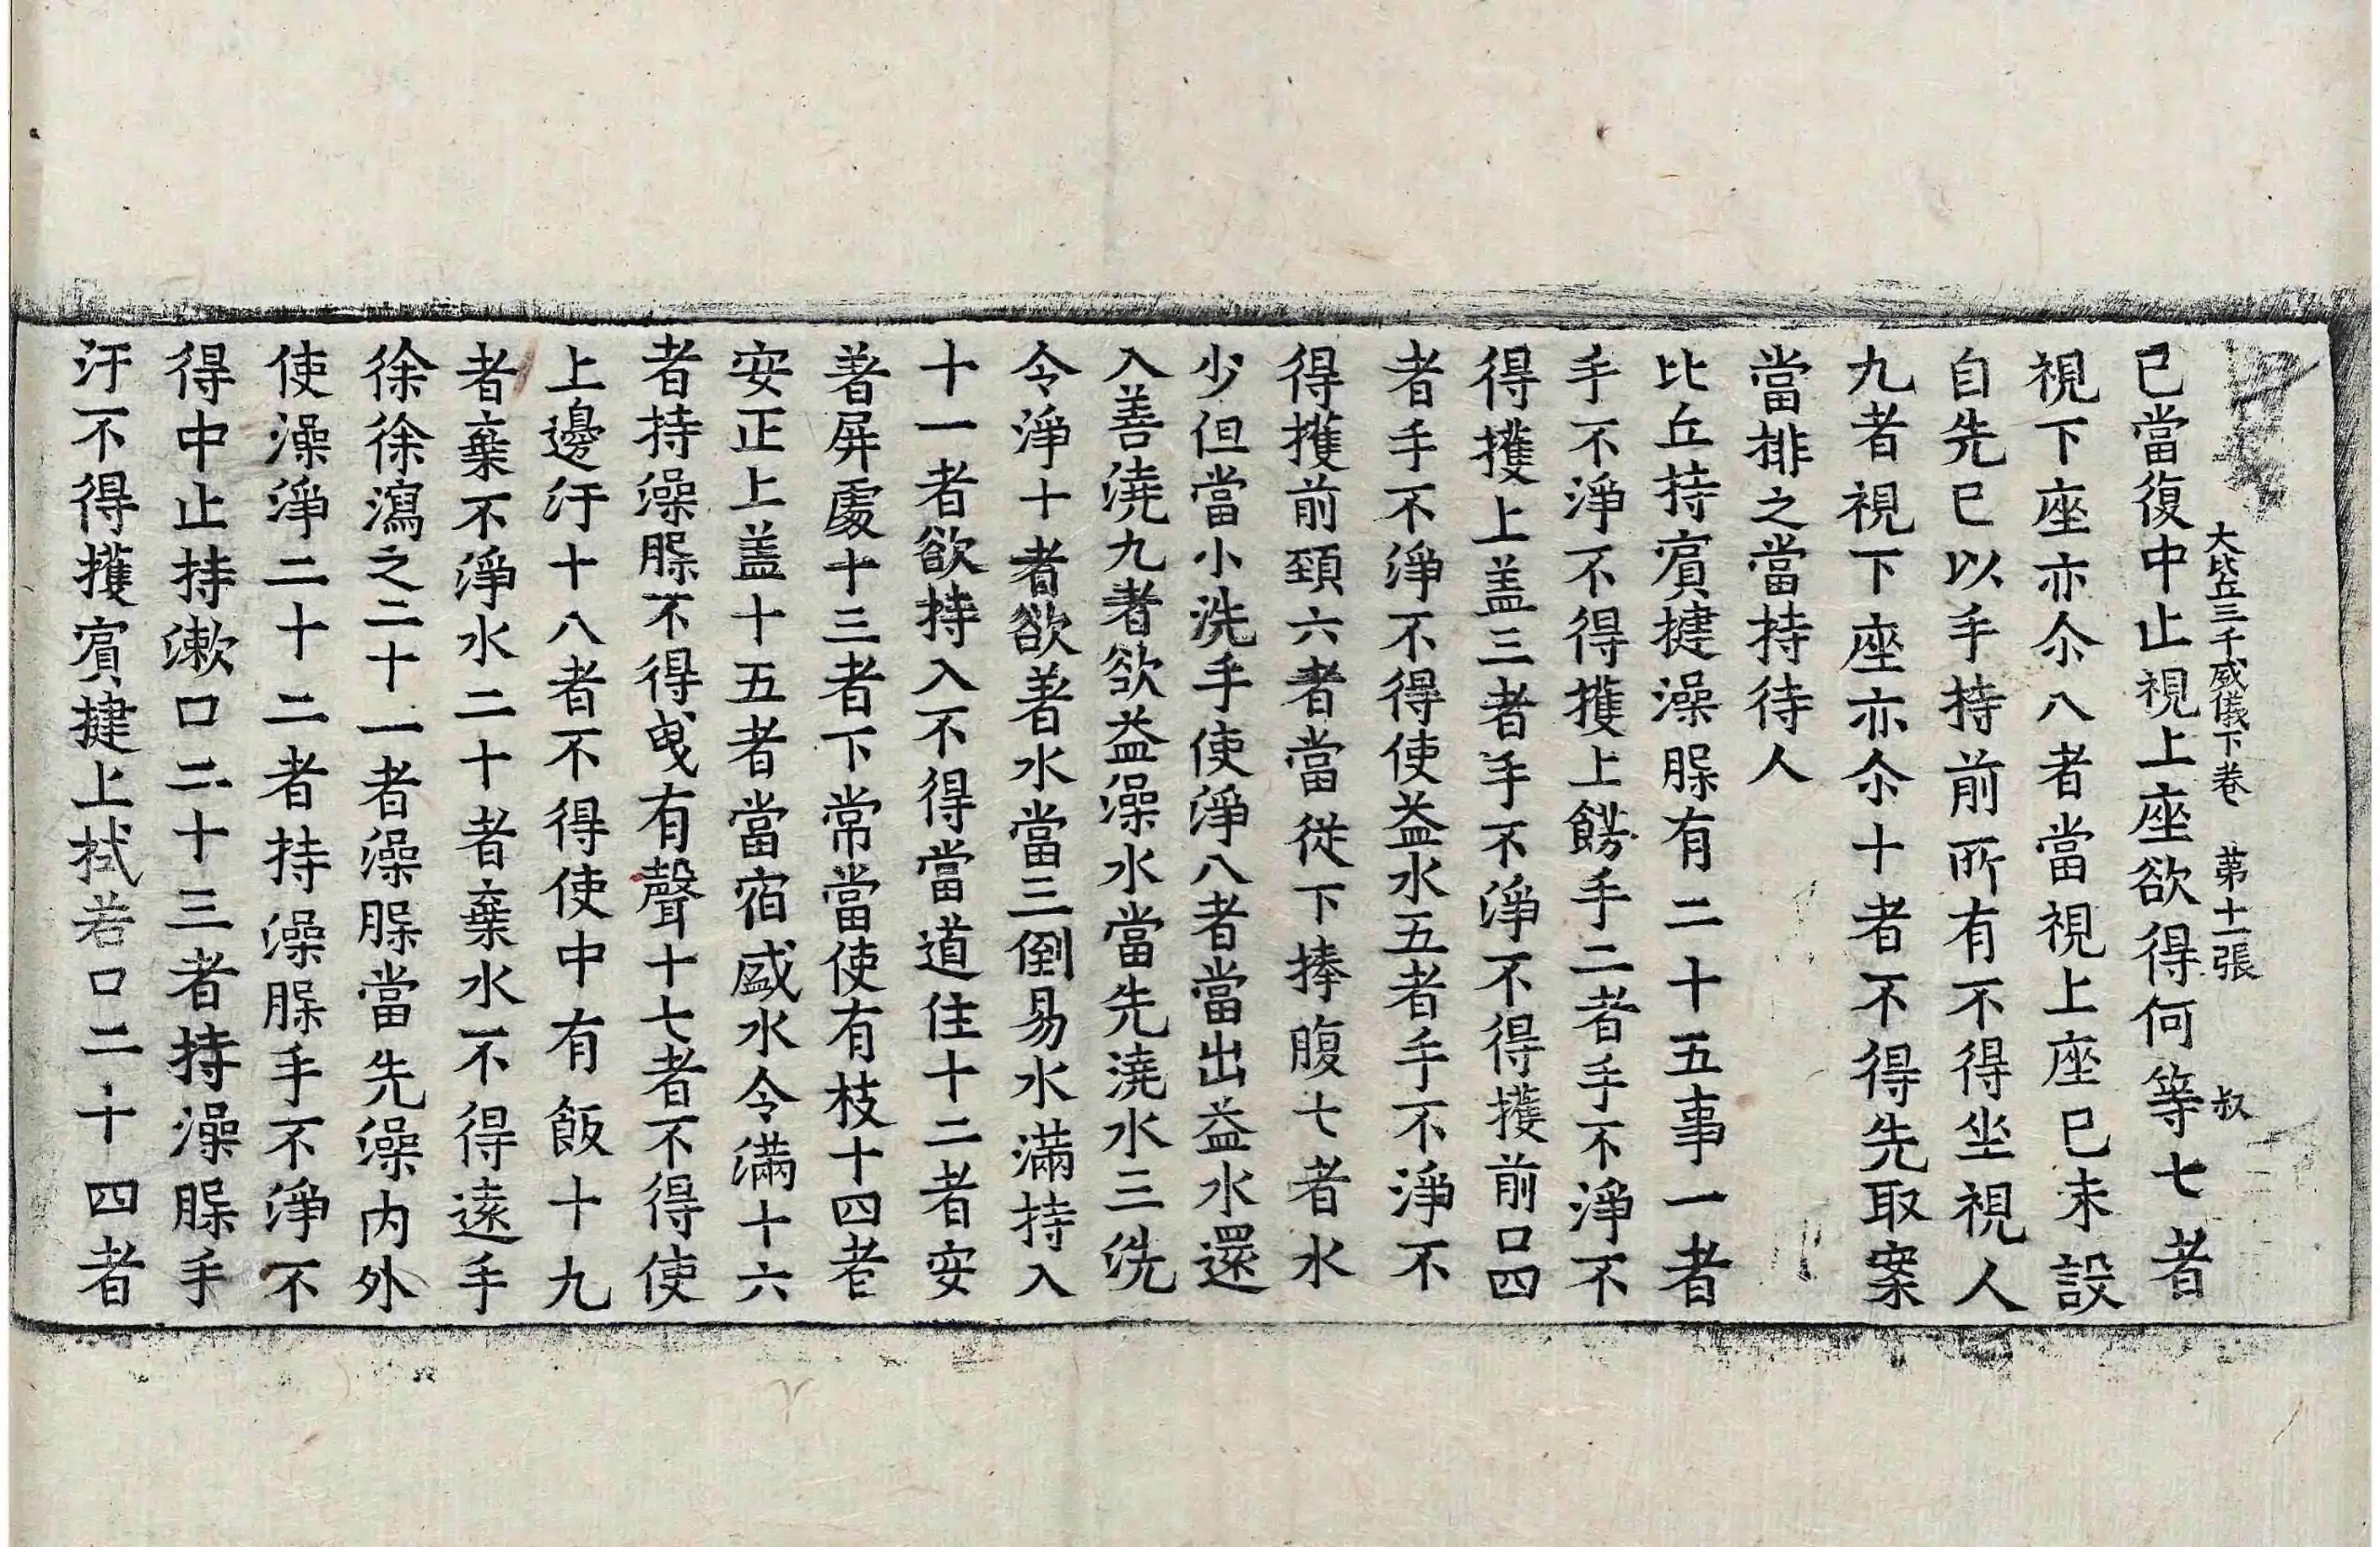 大比丘三千威儀下卷　第十二張　叔
已當復中止視上座欲得何等七者
視下座亦尒八者當視上座已未設
自先已以手持前所有不得坐視人
九者視下座亦尒十者不得先取案
當排之當持待人
比丘持㝊揵澡䐧有二十五事一者
手不淨不得擭上餝手二者手不淨不
得擭上盖三者手不淨不得擭前口四
者手不淨不得使益水五者手不淨不
得擭前頸六者當從下捧腹七者水
少但當小洗手使淨八者當出益水還
入善澆九者欲益澡水當先澆水三洗
令淨十者欲著水當三倒易水滿持入
十一者欲持入不得當道住十二者安
著屏處十三者下常當使有枝十四者
安正上盖十五者當宿盛水令滿十六
者持澡䐧不得曳有聲十七者不得使
上邊汙十八者不得使中有飯十九
者棄不淨水二十者棄水不得遠手
徐徐瀉之二十一者澡䐧當先澡内外
使澡淨二十二者持澡䐧手不淨不
得中止持漱口二十三者持澡䐧手
汙不得擭㝊揵上拭若口二十四者